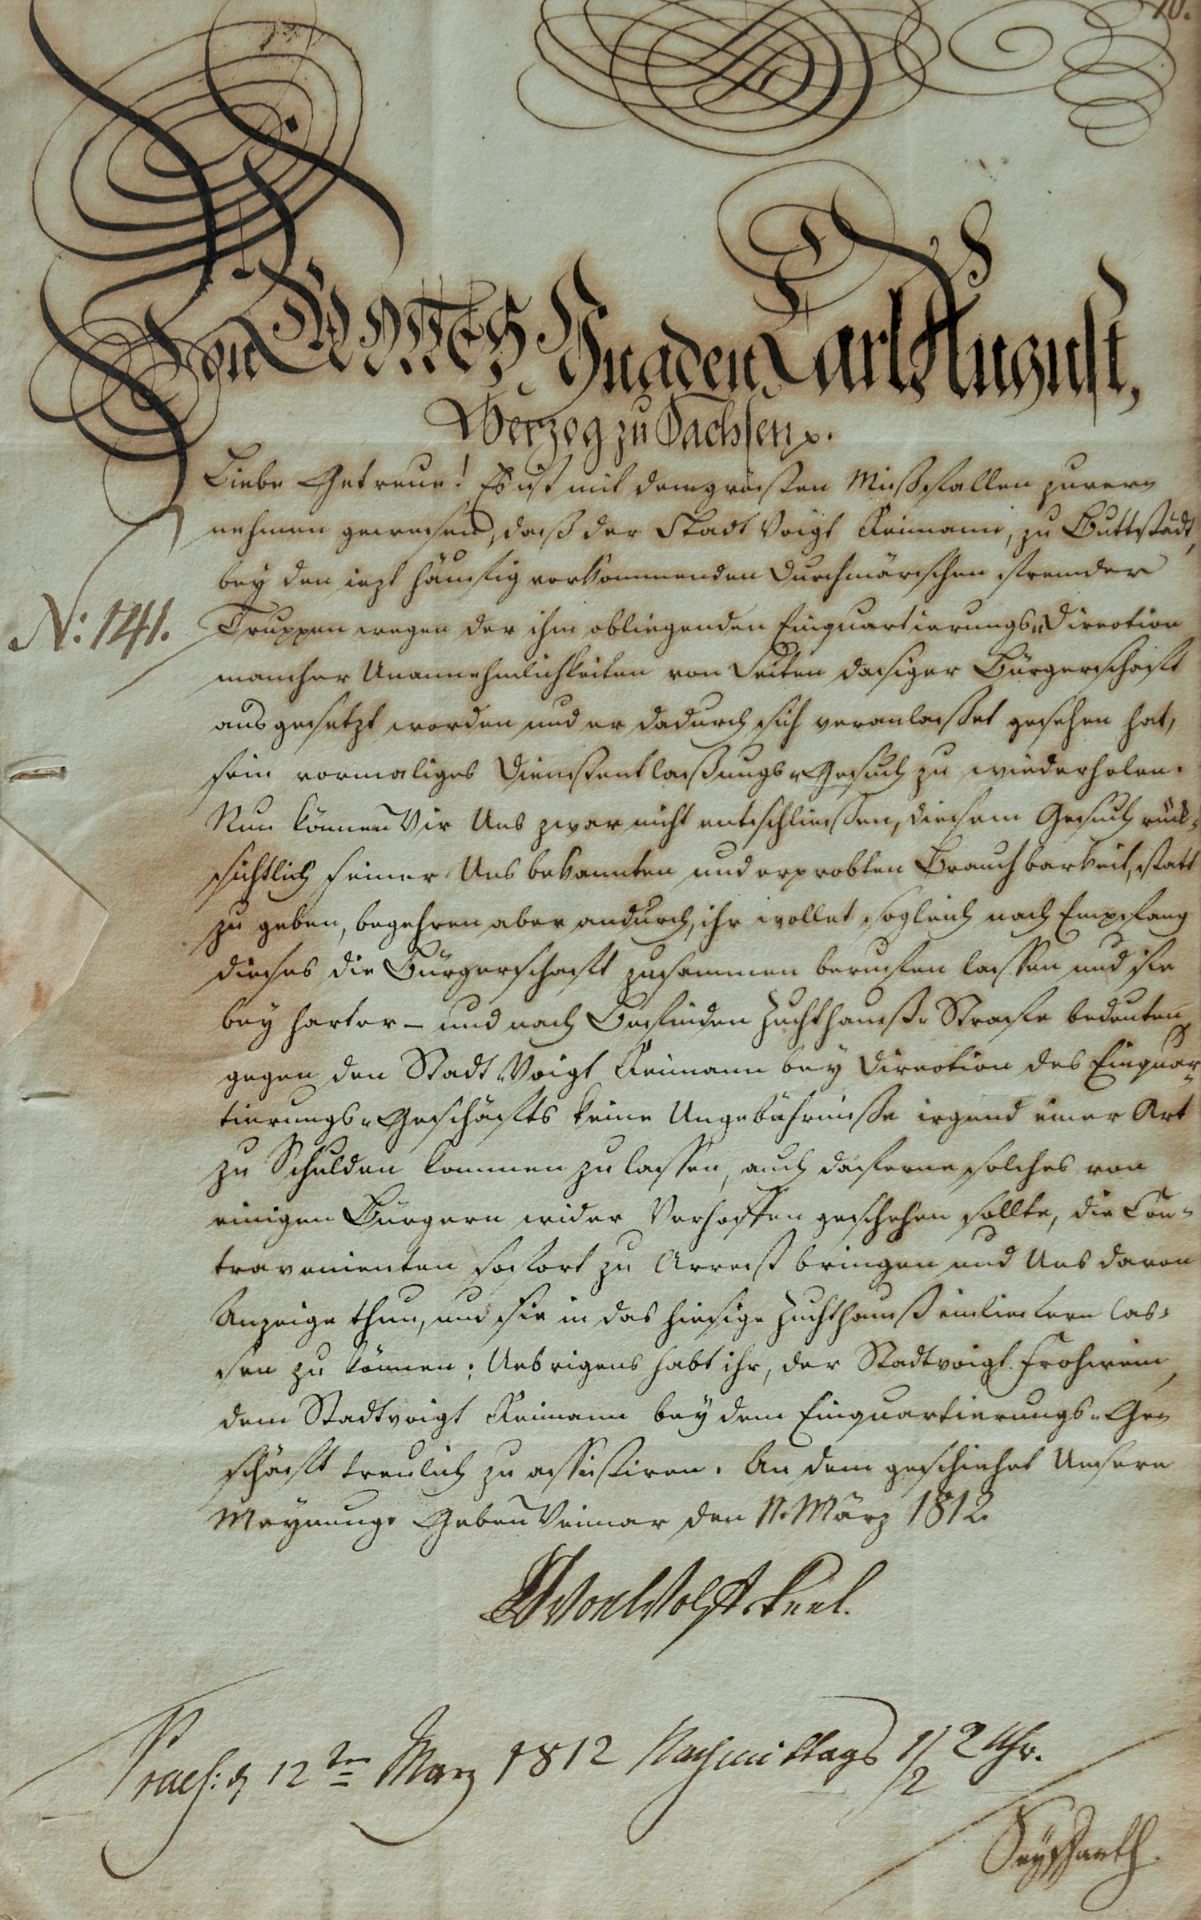 10.
Von GOTTES Gnaden Carl August,
Herzog zu Sachsen p.
Liebe Getreue! Es ist mit dem grösten Mißfallen zu ver-
nehmen gewesen, daß der Stadt Voigt Reimann, zu Buttstädt,
bey den iezt häufig vorkommenden Durchmärschen fremder
N: 141.
Truppen wegen der ihm obliegenden Einquartierungs-Direction
mancher Unannehmlichkeiten von Seiten dasiger Bürgerschaft
ausgesetzt worden und er dadurch sich veranlasset gesehen hat,
sein vormaliges Dienstentlaßungs-Gesuch zu wiederholen.
Nun können Wir Uns zwar nicht entschliessen, diesem Gesuch rück-
sichtlich seiner Uns bekannten und erprobten Brauchbarkeit, statt
zu geben, begehren aber andurch, ihr wollet sogleich nach Empfang
dieses die Bürgerschaft zusammen berufen lassen und sie
bey harter- und nach Befinden Zuchthauß-Strafe bedeuten
gegen den Stadt-Voigt Reimann bey Direction des Einquar-
tierungs-Geschäfts keine Ungebührniße irgend einer Art
zu Schulden kommen zu lassen, auch daferne solches von
einigen Bürgern wider Verhoffen geschehen sollte, die Con-
travenienten sofort zu Arrest bringen und Uns davon
Anzeige thun, um sie in das hiesige Zuchthauß einliefern las-
sen zu können; Uebrigens habt ihr, der Stadtvoigt Frohwein,
dem Stadtvoigt Reimann bey dem Einquartierungs-Ge-
schäft treulich zu assistiren. An dem geschiehet Unsere
Meynung. Geben Weimar den 11. März 1812.
von Wolfskeel.
Praes: d 12ten Marz 1812 Nachmittags 1/2 2 Uhr.
Seyffarth.